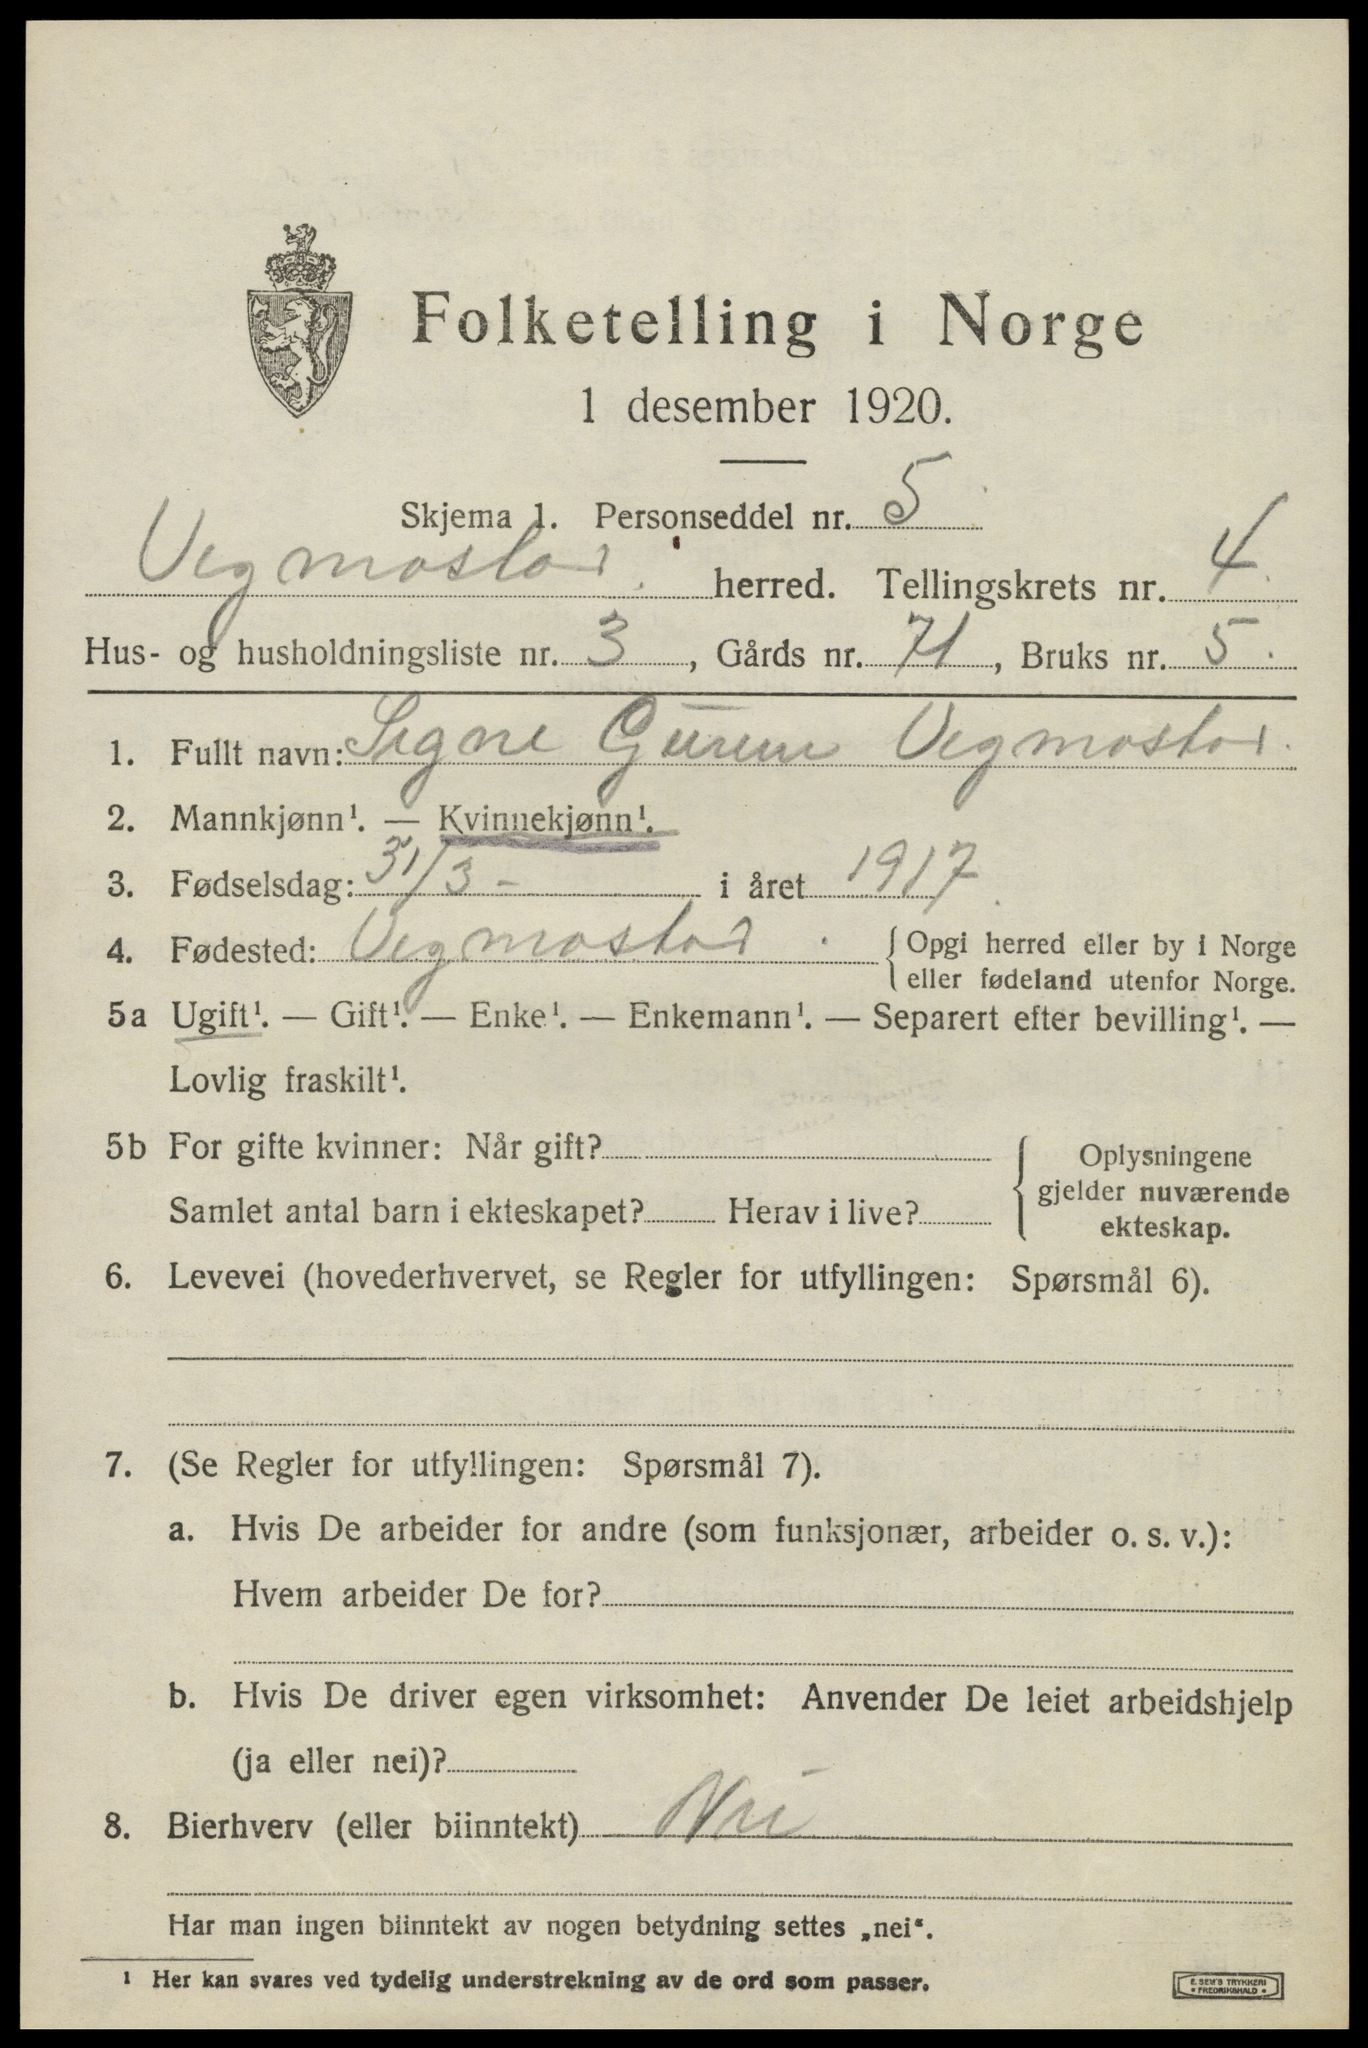 Folketelling i Norge
1 desember 1920.
Skjema 1. Personseddel nr. 5
Vegmostad herred. Tellingskrets nr. 4
Hus- og husholdningsliste nr. 3, Gårds nr. 71, Bruks nr. 5.
1. Fullt navn: Signe Vegmostad.
2. Mannkjønn¹. — Kvinnekjønn¹.
3. Fødselsdag: 31/3 - i året 1917.
4. Fødested: Vegmostad. { Opgi herred eller by i Norge
eller fødeland utenfor Norge.
5a Ugift¹. — Gift¹. — Enke¹. — Enkemann¹. — Separert efter bevilling¹. —
Lovlig fraskilt¹.
5b For gifte kvinner: Når gift? { Oplysningene
gjelder nuværende
ekteskap.
Samlet antal barn i ekteskapet? Herav i live?
6. Levevei (hovederhvervet, se Regler for utfyllingen: Spørsmål 6).
7. (Se Regler for utfyllingen: Spørsmål 7).
a. Hvis De arbeider for andre (som funksjonær, arbeider o. s. v.):
Hvem arbeider De for?
b. Hvis De driver egen virksomhet: Anvender De leiet arbeidshjelp
(ja eller nei)?
8. Bierhverv (eller biinntekt) Nei
Har man ingen biinntekt av nogen betydning settes „nei“.
¹ Her kan svares ved tydelig understrekning av de ord som passer.
E. SEM'S TRYKKERI
• FREDRIKSHALD •